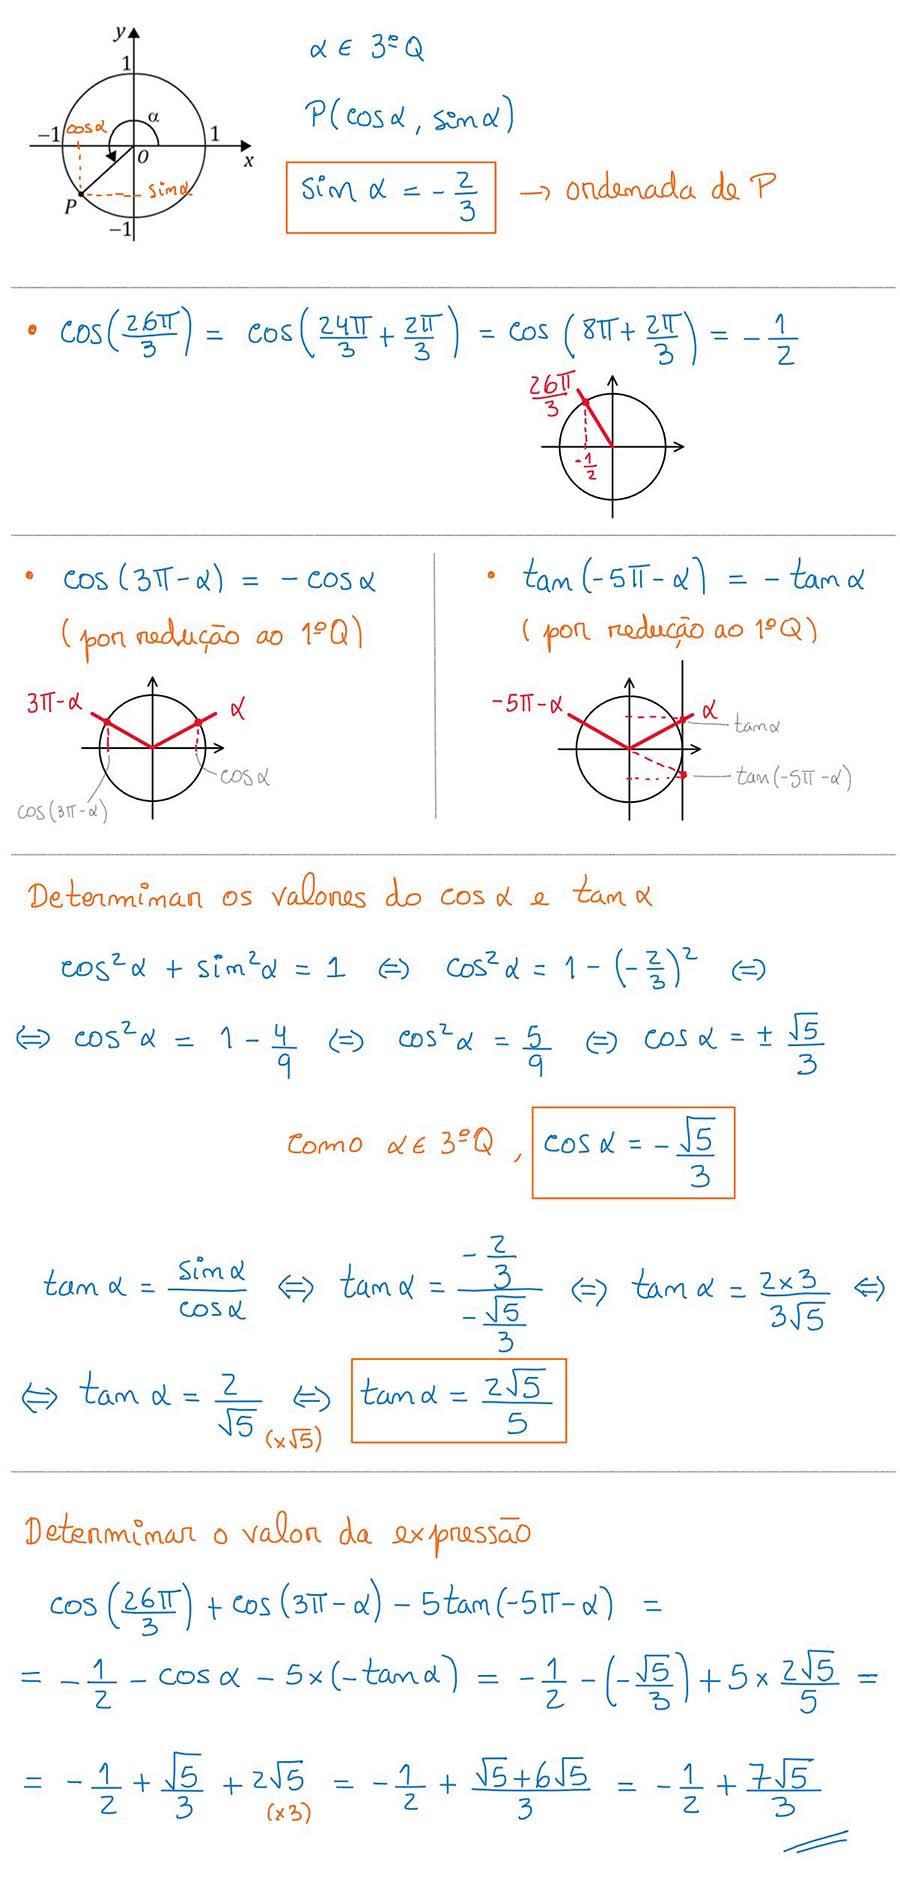 y
1
α ∈ 3ºQ
-1 cosα α 1
O x
P(cosα, sinα)
P sinα
-1
sin α = -2/3 → ordenada de P
• cos(26π/3) = cos(24π/3 + 2π/3) = cos(8π + 2π/3) = -1/2
26π/3
-1/2
• cos(3π-α) = -cosα
(por redução ao 1ºQ)
3π-α α
cosα
cos(3π-α)
• tan(-5π-α) = -tanα
(por redução ao 1ºQ)
-5π-α α
tanα
tan(-5π-α)
Determinar os valores do cosα e tanα
cos²α + sin²α = 1 ⇔ cos²α = 1-(-2/3)² ⇔
⇔ cos²α = 1-4/9 ⇔ cos²α = 5/9 ⇔ cosα = ±√5/3
Como α∈3ºQ, cosα = -√5/3
tanα = sinα/cosα ⇔ tanα = (-2/3)/(-√5/3) ⇔ tanα = 2×3/3√5 ⇔
⇔ tanα = 2/√5 (×√5) ⇔ tanα = 2√5/5
Determinar o valor da expressão
cos(26π/3) + cos(3π-α) - 5tan(-5π-α) =
= -1/2 - cosα - 5×(-tanα) = -1/2 - (-√5/3) + 5×2√5/5 =
= -1/2 + √5/3 + 2√5 (×3) = -1/2 + √5+6√5/3 = -1/2 + 7√5/3